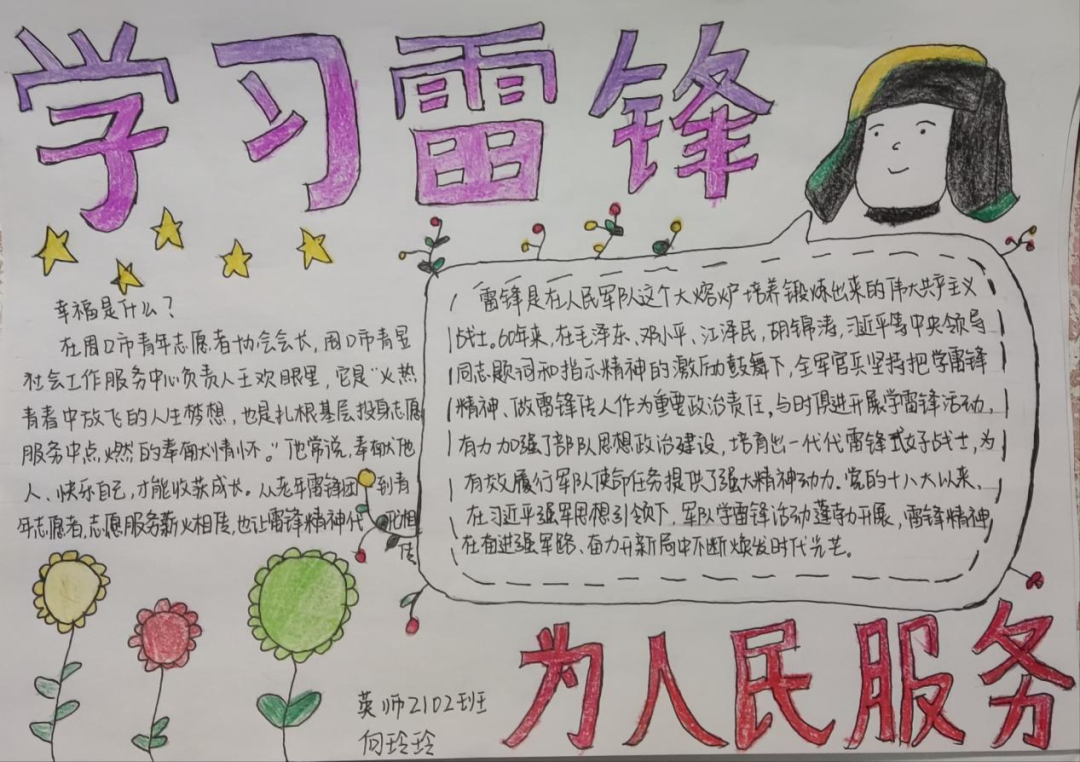 学习雷锋
幸福是什么？
在周口市青年志愿者协会会长，周口市青昱
社会工作服务中心负责人王欢眼里，它是“火热
青春中放飞的人生梦想，也是扎根基层投身志愿
服务中点燃的奉献情怀。”他常说，奉献他
人、快乐自己，才能收获成长。从老年雷锋团到青
年志愿者，志愿服务薪火相传，也让雷锋精神代代相
传
雷锋是在人民军队这个大熔炉培养锻炼出来的伟大共产主义
战士。60年来，在毛泽东、邓小平、江泽民，胡锦涛，习近平等中央领导
同志题词和指示精神的激励鼓舞下，全军官兵坚持把学雷锋
精神、做雷锋传人作为重要政治责任，与时俱进开展学雷锋活动，
有力加强了部队思想政治建设，培育出一代代雷锋式好战士，为
有效履行军队使命任务提供了强大精神动力。党的十八大以来、
在习近平强军思想引领下，军队学雷锋活动蓬勃开展，雷锋精神
在奋进强军路、奋力开新局中不断焕发时代光芒。
为人民服务
英师2102班
何玲玲